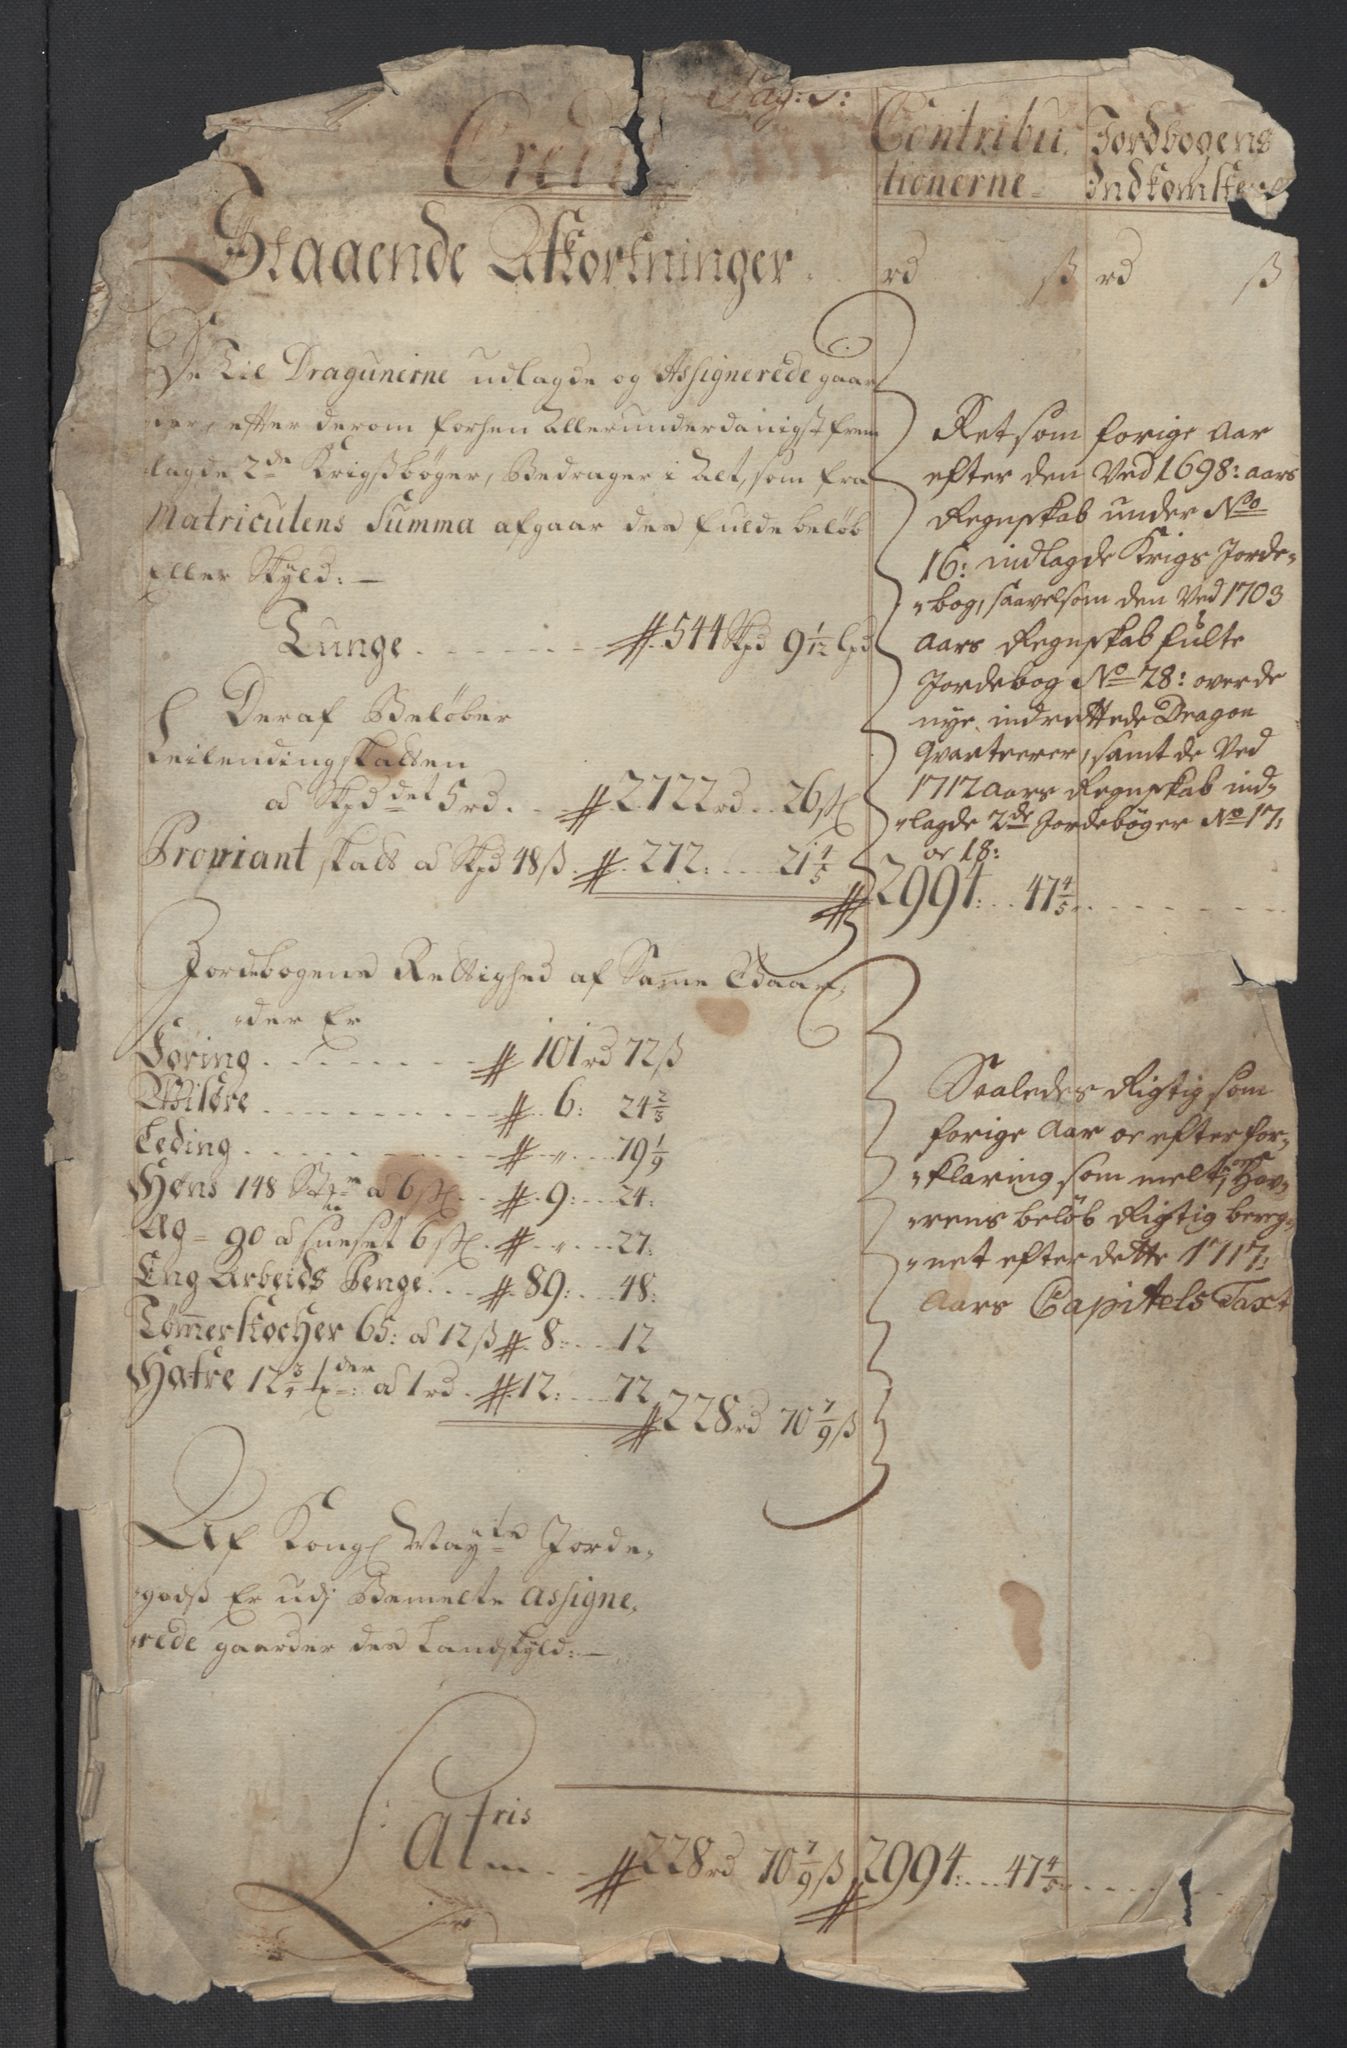 Pag: 5:
Credit
Contribu,
tionerne
Jordbogens
Indkomster
Staaende Afkortninger.
rd ß rd ß
De til Dragunerne udlagde og Assignerede gaar
der, efter derom forhen allerunderdanigst frem
lagde 2de Krigsbøger, Bedrager i alt, som fra
Matriculens Summa afgaar den fulde beløb
eller Skyld:
Tunge 544 Skpd 9 1/12 lpd
Deraf Beløber
Leilendingskatten
a Skpd det 5 rd. 2722 rd 26 ß
Proviant skatt a Skpd 48 ß 272: 21 4/5
2994: 47 4/5
Ret som forige Aar
efter den Ved 1698: aars
Regnskab under No
16: indlagde Krigs Jorde-
bog, saavelsom den Ved 1703
Aars Regnskab fulte
Jordebog No 28: over de
nye indrettede Dragon
Qvarteerer, samt de Ved
1712 Aars Regnskab ind-
lagde 2de Jordebøger No 17:
oc 18:
Jordebogens Rettighed af Samme Gaar,
der Er
Foring 101 rd 72 ß
Wisøre 6: 24 2/5
Leding " 19 1/9
Høns 148 a 6 ß 9: 24:
Æg 90 a 6 ß " 27:
Eng Arbeids Penge 89: 48:
Tømmerstocher 65: a 12 ß 8: 12
Hafre 12 3/4 tder a 1 rd 12: 72
228 rd 70 7/9 ß
Saaledes Rigtig som
forige Aar oc efter for-
klaring som melt, og Hav-
rens beløb Rigtig bereg-
net efter dette 1717:
Aars Capitels Taxt
Af Kongl Mayts Jorde,
godß Er udj Bemelte assigne,
rede gaarder den Landskyld:
Latris
228 rd 70 7/9 ß 2994: 47 4/5